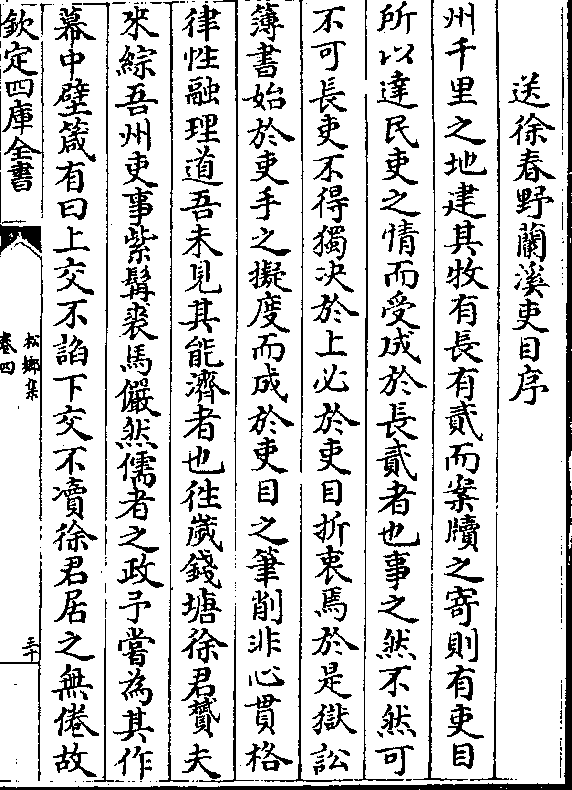 送徐春野蘭溪吏目序
州千里之地建其牧有長有貳而案牘之寄則有吏目
所以達民吏之情而受成於長貳者也事之然不然可
不可長吏不得獨决於上必於吏目折衷焉於是獄訟
簿書始於吏手之擬度而成於吏目之筆削非心貫格
律性融理道吾未見其能濟者也徃嵗錢塘徐君贊夫
來綜吾州吏事紫髯裘馬儼然儒者之政予嘗為其作
幕中壁箴有曰上交不諂下交不凟徐君居之無倦故
欽定四庫全書
松鄉集
卷四
三十